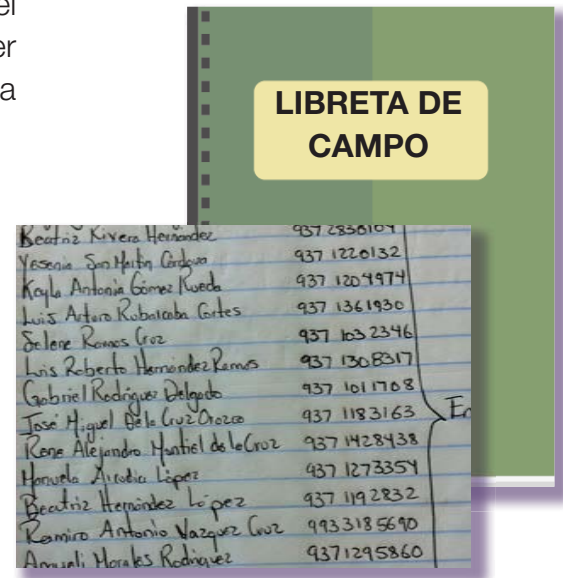 el
er
a
LIBRETA DE
CAMPO
Beatriz Rivera Hernández 937 2830104
Yesenia San Martin Cordova 937 1220132
Keyla Antonia Gómez Rueda 937 1204974
Luis Arturo Rubalcaba Cortes 937 1361930
Selene Ramos Cruz 937 1032346
Luis Roberto Hernández Ramos 937 1308317
Gabriel Rodriguez Delgado 937 1011708
José Miguel De la Cruz Orozco 937 1183163
Rene Alejandro Montiel de la Cruz 937 1428438
Manuela López 937 1273354
Beatriz Hernández López 937 1192832
Ramiro Antonio Vazquez Cruz 9933185690
Morales Rodriguez 9371295860